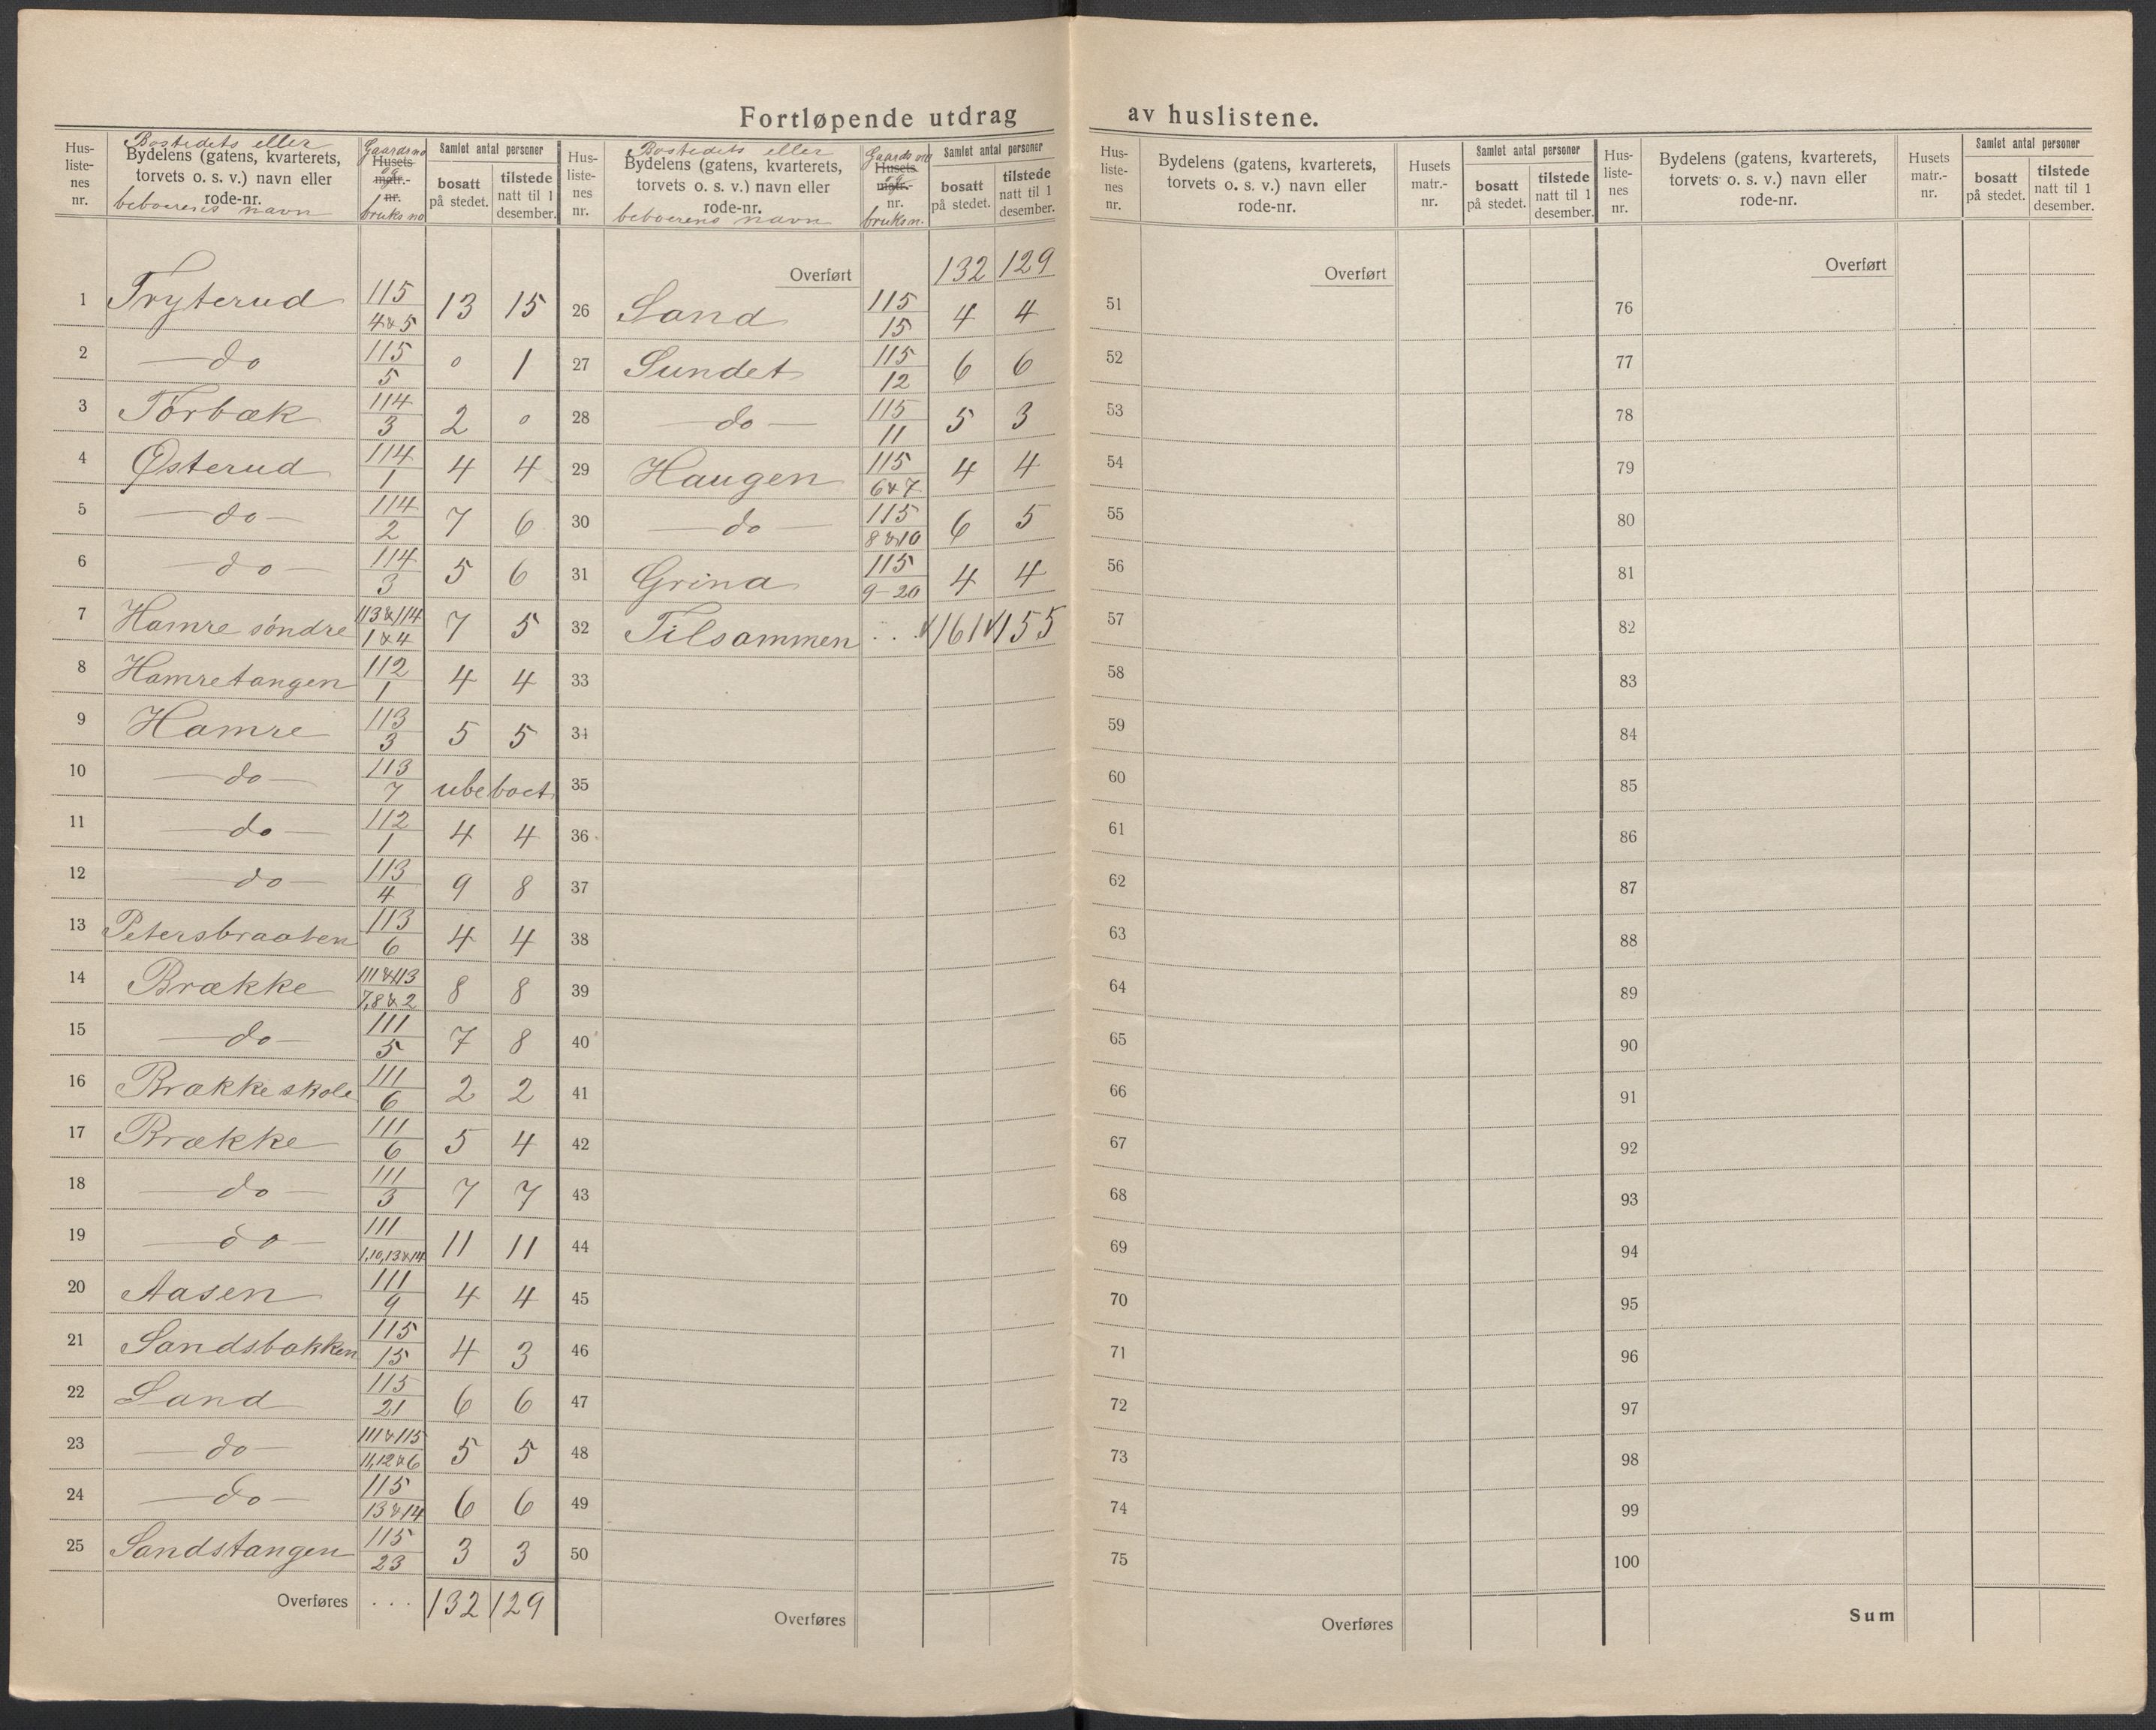 Fortløpende utdrag av huslistene.
Hus-liste-nes nr. | Bostedets eller Bydelens (gatens, kvarterets, torvets o. s. v.) navn eller rode-nr. beboerens navn | Gaards no og Husets matr.-nr. bruks no | Samlet antal personer bosatt på stedet. | tilstede natt til 1 desember.
1 Tryterud 115/4&5 13 15
2 — do 115/5 0 1
3 Torbæk 114/3 2 0
4 Østerud 114/1 4 4
5 — do — 114/2 7 6
6 — do — 114/3 5 6
7 Hamre söndre 113&114/1&4 7 5
8 Hamretangen 112/1 4 4
9 Hamre 113/3 5 5
10 — do — 113/7 ubeboet
11 — do — 112/1 4 4
12 — do — 113/4 9 8
13 Petersbraaten 113/6 4 4
14 Brække 111&113/7,8&2 8 8
15 — do — 111/5 7 8
16 Brække skole 111/6 2 2
17 Brække 111/6 5 4
18 — do — 111/3 7 7
19 — do — 111/1,10,13&14 11 11
20 Aasen 111/9 4 4
21 Sandsbakken 115/15 4 3
22 Sand 115/21 6 6
23 — do — 111&115/11,12&6 5 5
24 — do — 115/13&14 6 6
25 Sandstangen 115/23 3 3
Overføres . . . 132 129
Hus-liste-nes nr. | Bostedets eller Bydelens (gatens, kvarterets, torvets o. s. v.) navn eller rode-nr. beboerens navn | Gaards no og Husets matr.-nr. bruks n. | Samlet antal personer bosatt på stedet. | tilstede natt til 1 desember.
Overført 132 129
26 Sand 115/15 4 4
27 Sundet 115/12 6 6
28 — do — 115/11 5 3
29 Haugen 115/6&7 4 4
30 — do — 115/8&10 6 5
31 Grina 115/9-20 4 4
32 Tilsammen . . . 161 155
33
34
35
36
37
38
39
40
41
42
43
44
45
46
47
48
49
50
Overføres
Hus-liste-nes nr. | Bydelens (gatens, kvarterets, torvets o. s. v.) navn eller rode-nr. | Husets matr.-nr. | Samlet antal personer bosatt på stedet. | tilstede natt til 1 desember.
Overført
51
52
53
54
55
56
57
58
59
60
61
62
63
64
65
66
67
68
69
70
71
72
73
74
75
Overføres
Hus-liste-nes nr. | Bydelens (gatens, kvarterets, torvets o. s. v.) navn eller rode-nr. | Husets matr.-nr. | Samlet antal personer bosatt på stedet. | tilstede natt til 1 desember.
Overført
76
77
78
79
80
81
82
83
84
85
86
87
88
89
90
91
92
93
94
95
96
97
98
99
100
Sum